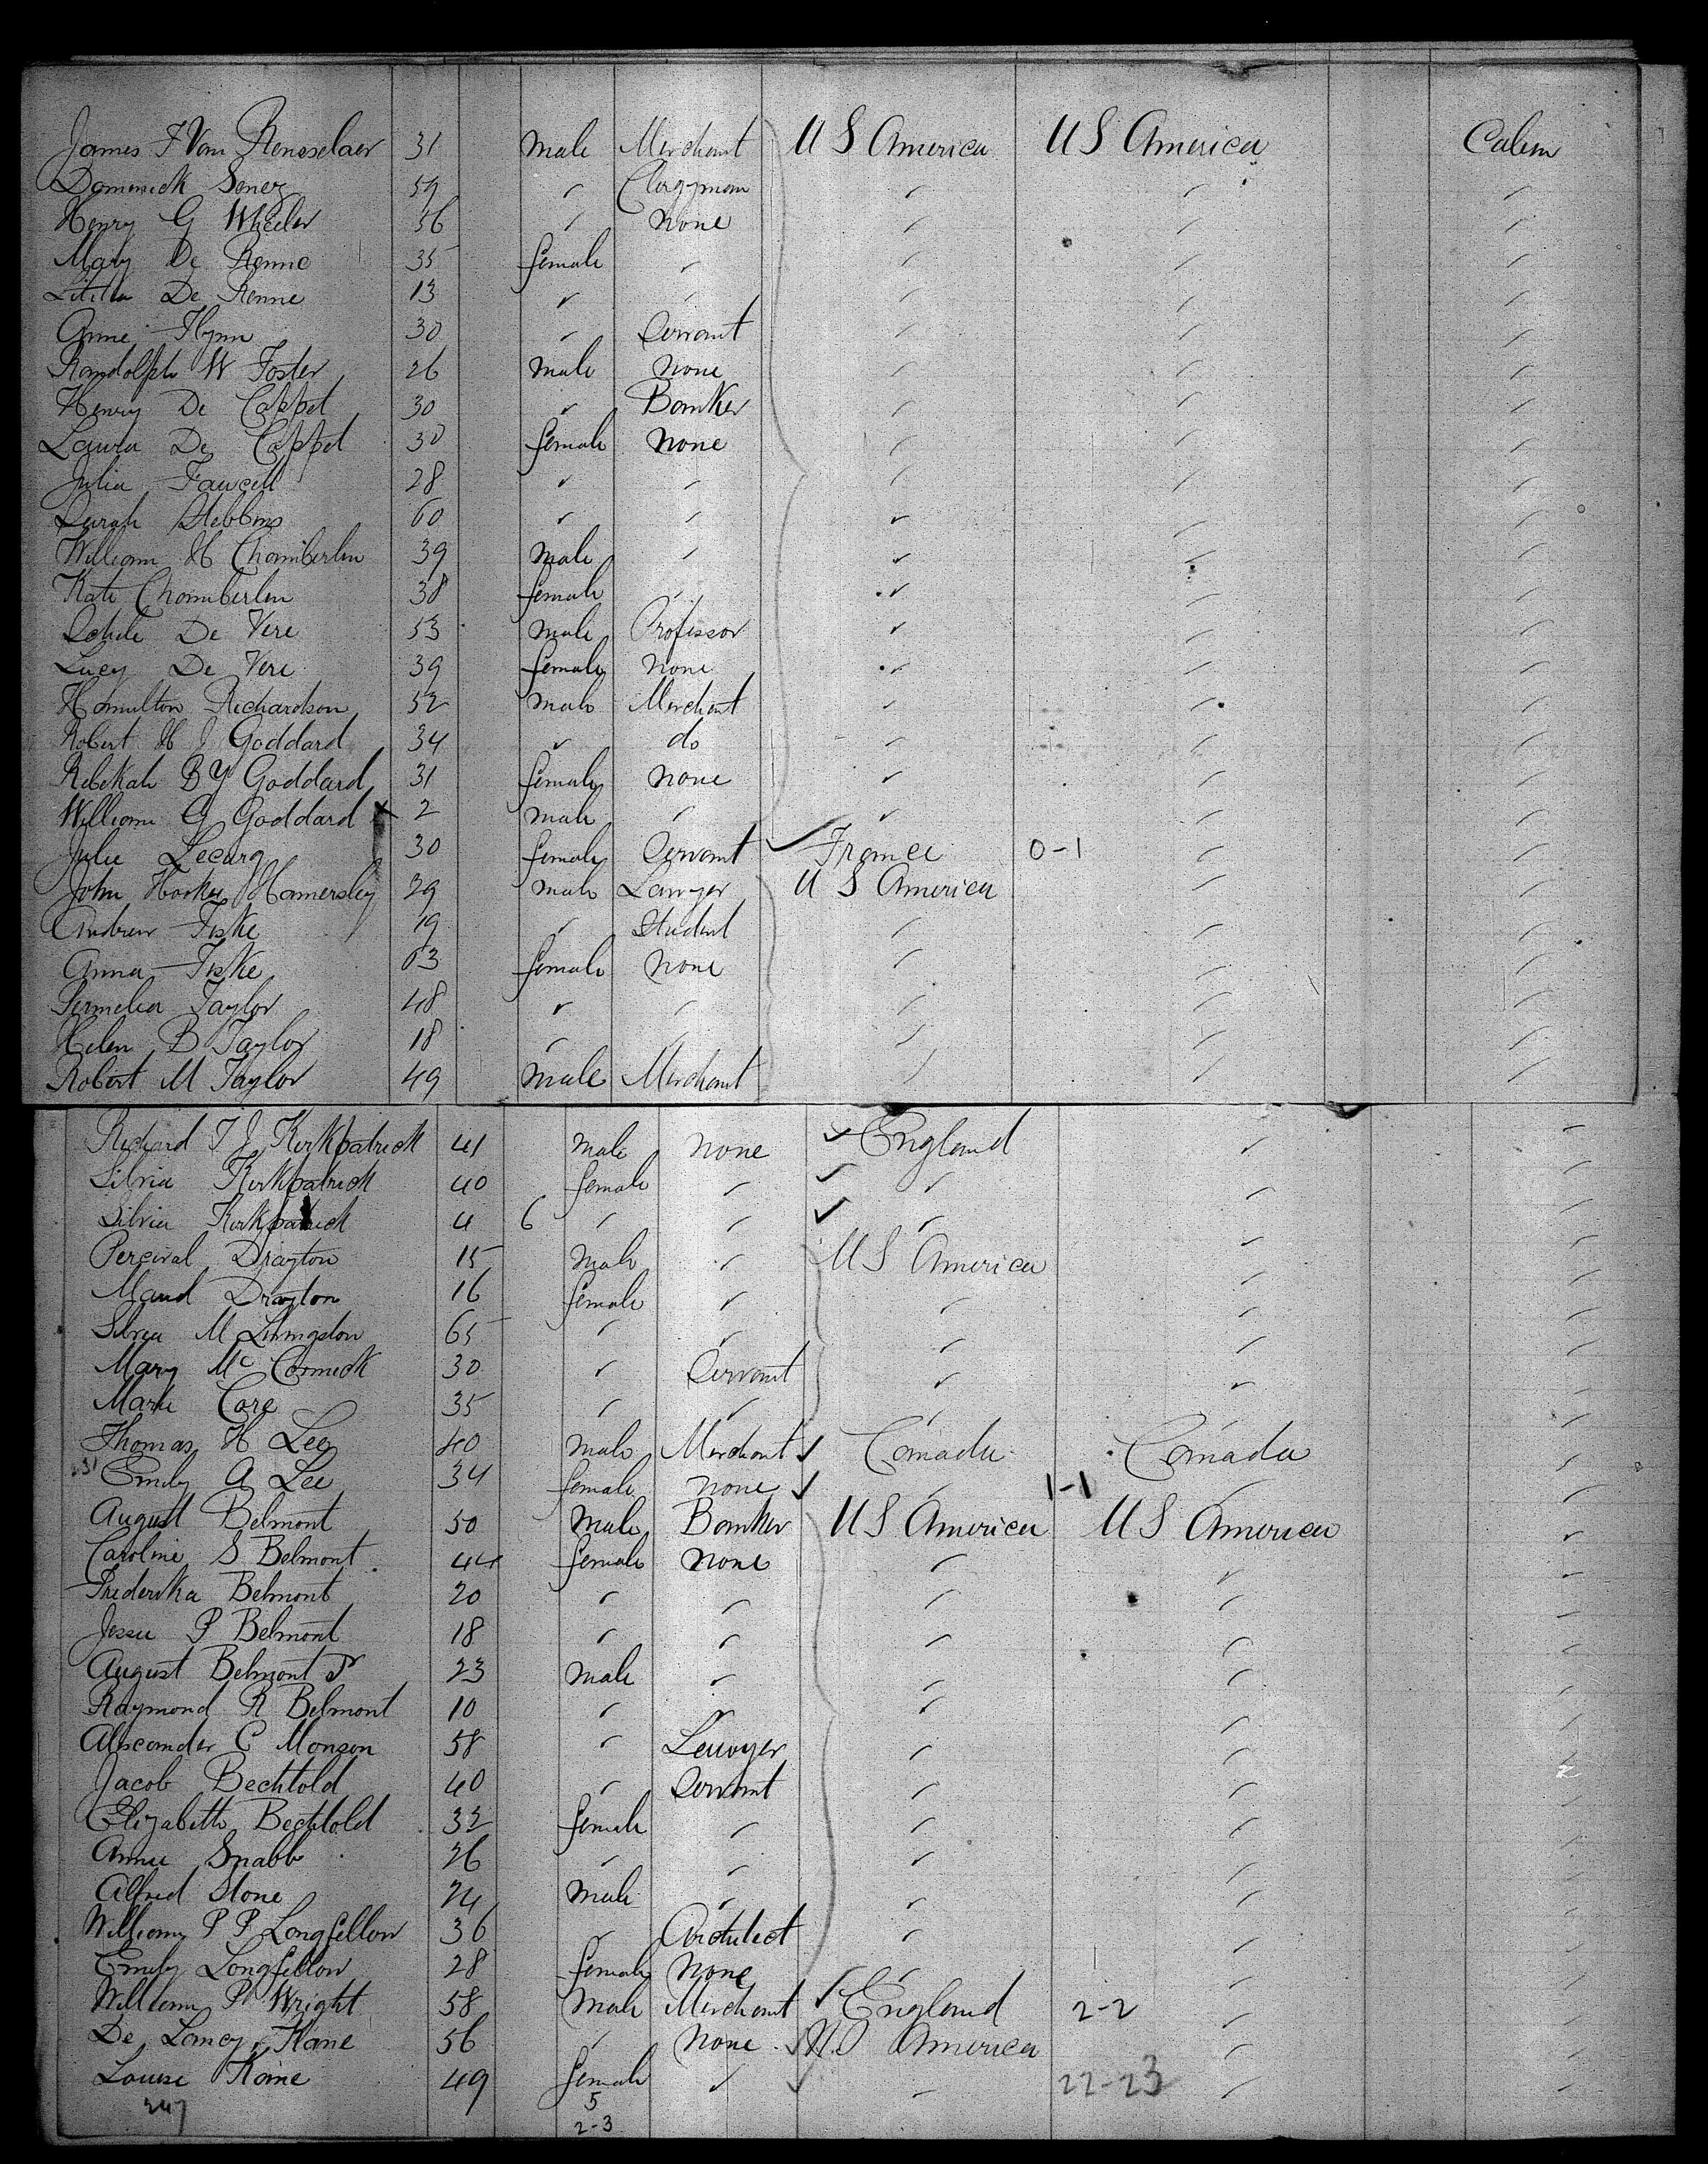 James F Van Rensselaer 31 male Merchant U S America U S America Cabin
Dominick Senez 59 " Clergyman " " "
Henry G Wheeler 56 " none " " "
Mary De Renne 35 female " " " "
Lititia De Renne 13 " " " " "
Anne Flynn 30 " Servant " " "
Randolph W Foster 26 male none " " "
Henry De Coppet 30 " Banker " " "
Laura De Coppet 30 female none " " "
Julia Fawcett 28 " " " " "
Sarah Stebbins 60 " " " " "
William H Chamberlin 39 male " " " "
Kate Chamberlin 38 female " " " "
Schele De Vere 53 male Professor " " "
Lucy De Vere 39 female none " " "
Hamilton Richardson 52 male Merchant " " "
Robert H J Goddard 34 " do " " "
Rebekah B Goddard 31 female none " " "
William G Goddard x 2 male " " " "
Julie Lecurq 30 female Servant France 0-1 " "
John Hooker Hamersley 29 male Lawyer U S America " "
Andrew Fiske 19 " Student " " "
Anna Fiske 63 female none " " "
Permelia Taylor 48 " " " " "
Helen B Taylor 18 " " " " "
Robert M Taylor 49 male Merchant " " "
Richard T J Kirkpatrick 41 male none England " "
Silvia Kirkpatrick 40 female " " " "
Silvia Kirkpatrick 4 6 " " " " "
Percival Drayton 15 male " U S America " "
Maud Drayton 16 female " " " "
Silvia M Livingston 65 " " " " "
Mary Mc Cormick 30 " Servant " " "
Marie Core 35 " " " " "
Thomas H Lee 40 male Merchant Canada Canada "
Emily A Lee 34 female none " 1-1 " "
August Belmont 50 male Banker U S America U S America "
Caroline S Belmont 44 female none " " "
Frederika Belmont 20 " " " " "
Jessie P Belmont 18 " " " " "
August Belmont Jr 23 male " " " "
Raymond R Belmont 10 " " " " "
Alexander C Monson 58 " Lawyer " " "
Jacob Bechtold 40 " Servant " " "
Elizabeth Bechtold 32 female " " " "
Annie Snabb 26 " " " " "
Alfred Stone 24 male " " " "
William P P Longfellow 36 " Architect " " "
Emily Longfellow 28 female none " " "
William P Wright 58 male Merchant England 2-2 " "
De Lancy Kane 56 " none U.S America " "
Louise Kane 49 female " " 22-23 " "
247 5
2-3